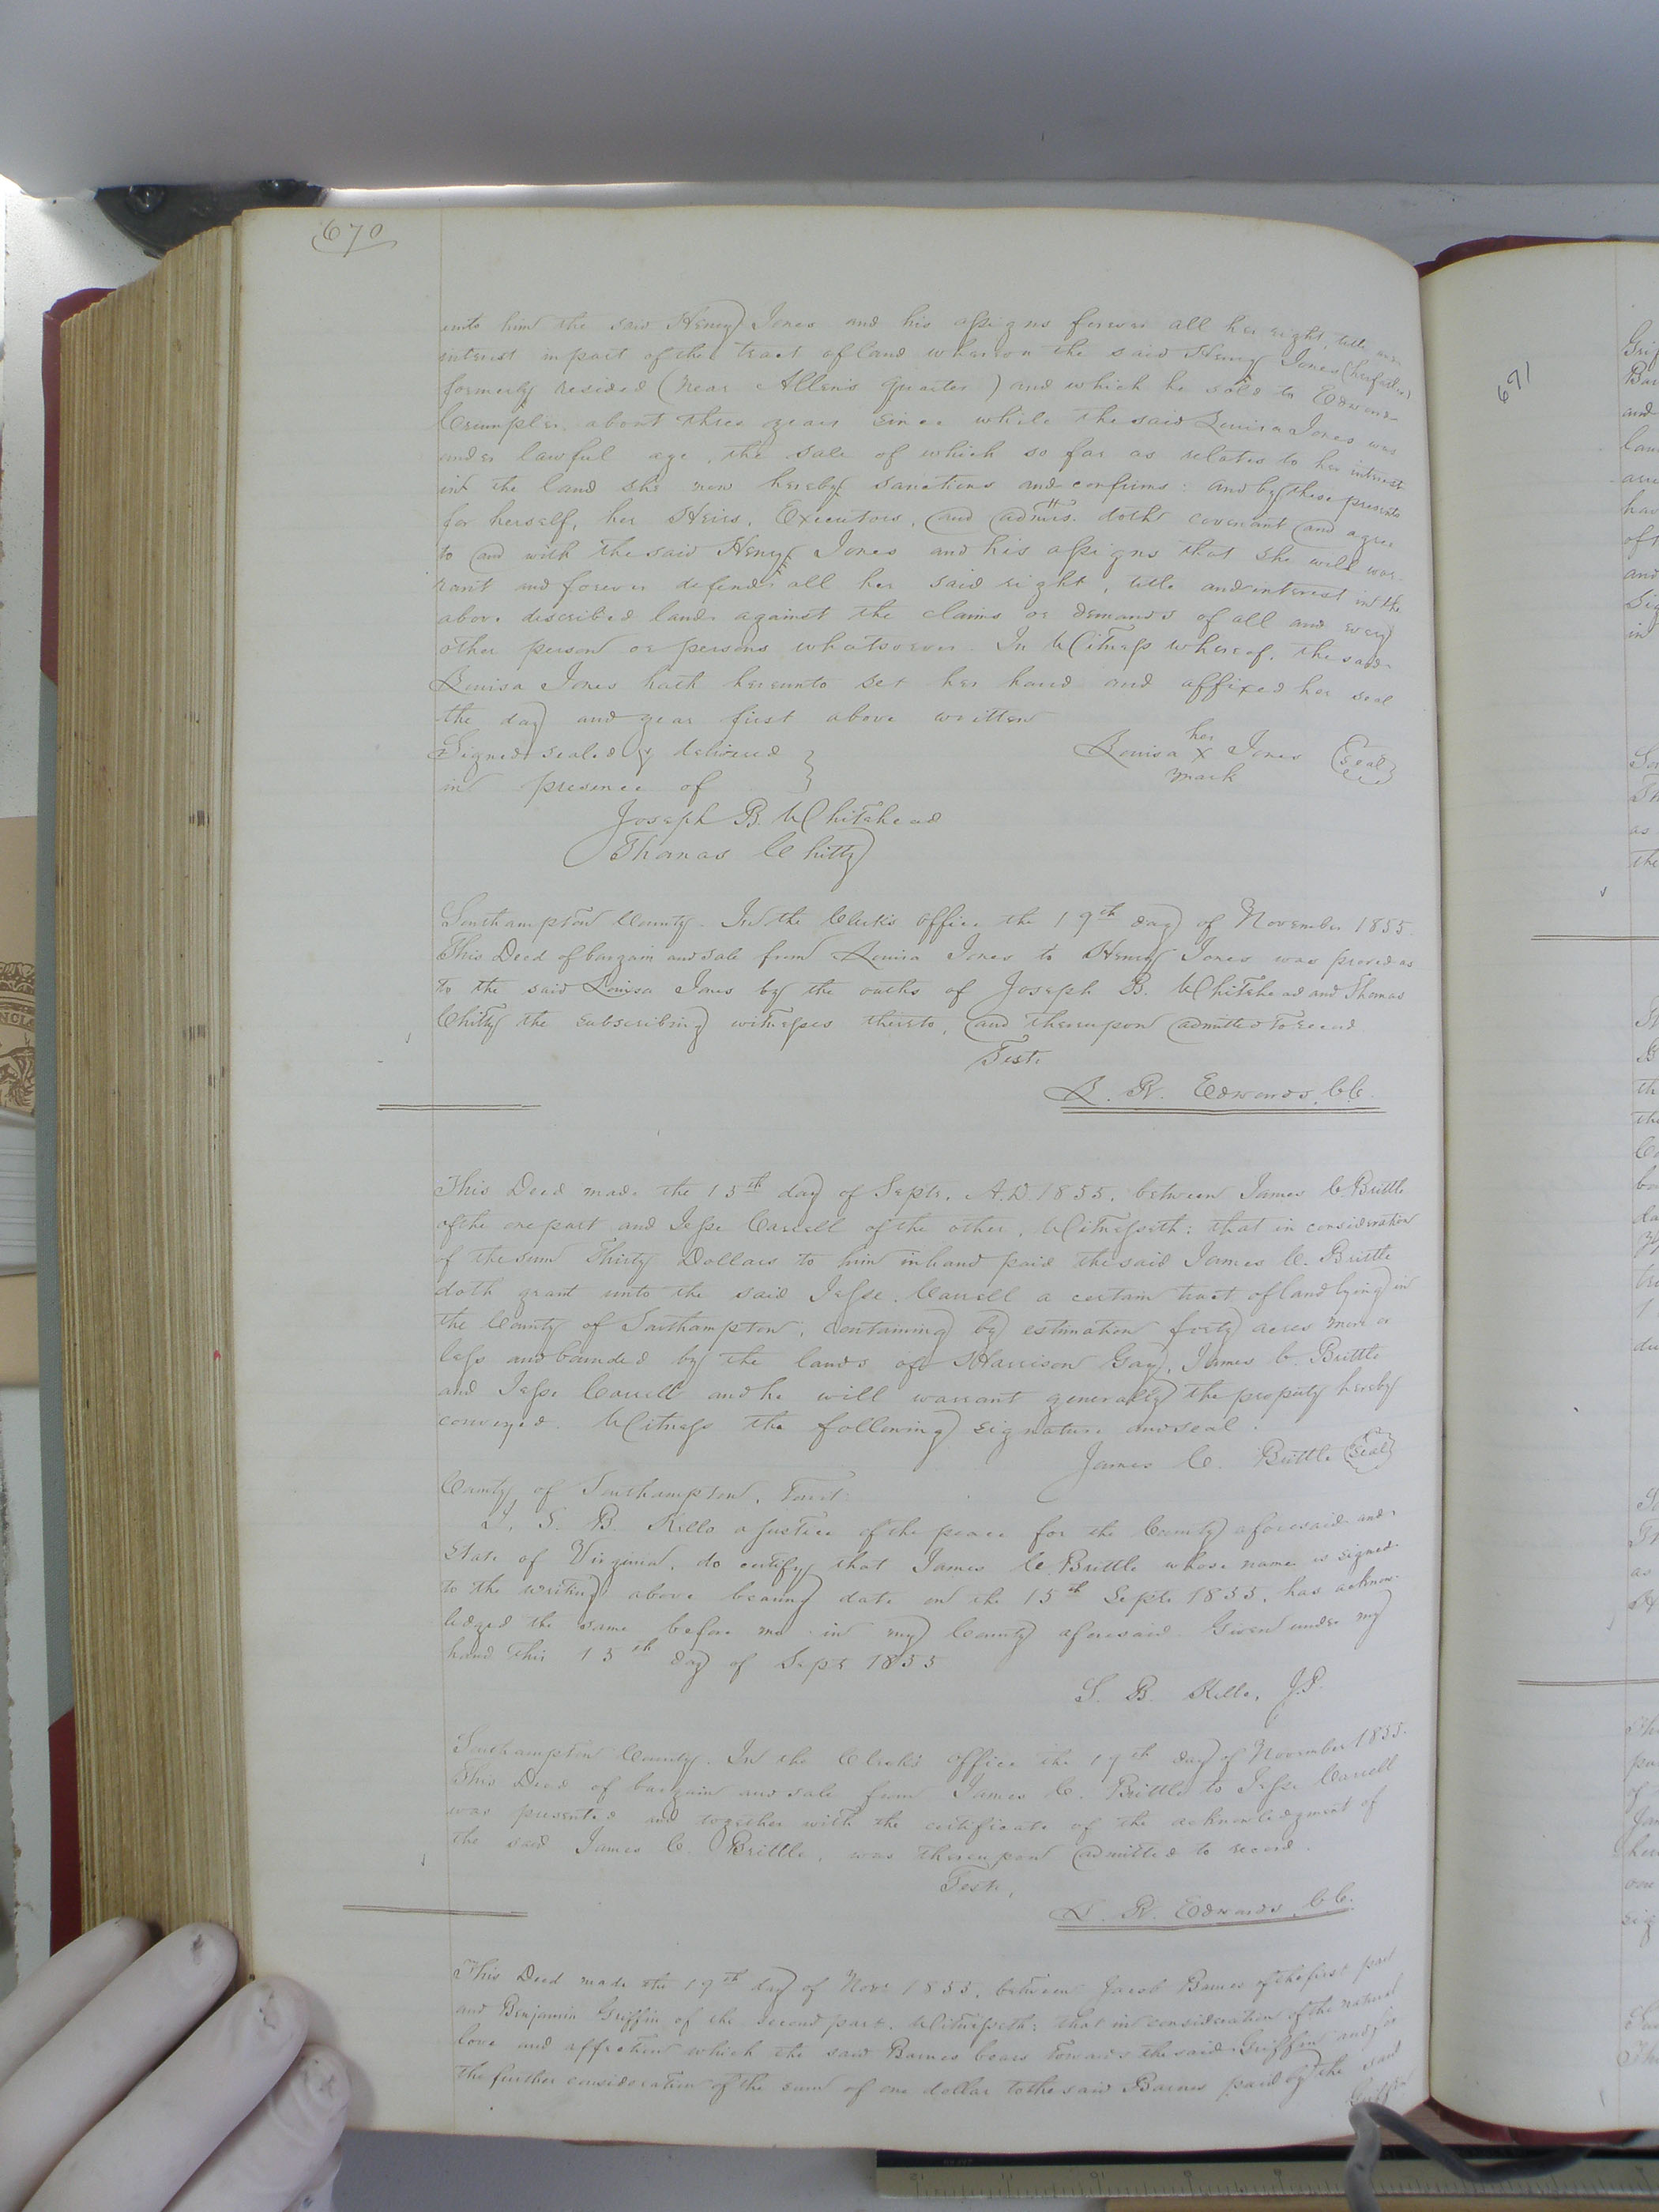 670
unto him the said Henry Jones and his assigns forever all her right, title and
interest in part of the tract of land whereon the said Henry Jones (her father)
formerly resided (near Allen's Quarter) and which he sold to Edward
Crumpler about three years since while the said Louisa Jones was
under lawful age, the sale of which so far as relates to her interest
int the land she now hereby sanctions and confirms: and by these presents
for herself, her Heirs, Executors, and admrs. doth covenant and agree
to and with the said Henry Jones and his assigns that she will war-
rant and forever defend all her said right, title and interest in the
above discribed land against the claims or demands of all and every
other person or persons whatsoever. In Witness whereof, the said
Louisa Jones hath hereunto set her hand and affixed her seal
the day and year first above written
Signed sealed & delivered
in presence of
her
Louisa X Jones (Seal)
mark
Joseph B. Whitehead
Thomas Chitty
Southampton County. In the Clerk's Office the 19th day of November 1855.
This Deed of bargain and sale from Louisa Jones to Henry Jones was proved as
to the said Louisa Jones by the oaths of Joseph B. Whitehead and Thomas
Chitty the subscribing witnesses thereto, and thereupon admitted to record
Teste
L. R. Edwards. CC.
This Deed made the 15th day of Septr. A.D. 1855. between James C Brittle
of the one part and Jesse Carrell of the other, Witnesseth: that in consideration
of the sum Thirty Dollars to him in hand paid the said James C. Brittle
doth grant unto the said Jesse Carrell a certain tract of land lying in
the County of Southampton, containing by estimation forty acres more or
less and bounded by the lands of Harrison Gay, James C. Brittle
and Jesse Carrell and he will warrant generally the property hereby
conveyed. Witness the following signature and seal.
James C. Brittle (Seal)
County of Southampton, Towit:
I, S. B. Kello a Justice of the peace for the County aforesaid and
State of Virginia, do certify that James C. Brittle whose name is signed
to the writing above bearing date on the 15th Septr 1855, has acknow-
ledged the same before me in my County aforesaid. Given under my
hand this 15th day of Septr 1855
S. B. Kello, J.P.
Southampton County. In the Clerk's office the 19th day of November 1855.
This Deed of bargain and sale from James C. Brittle to Jesse Carrell
was presented and together with the certificate of the acknowledgment of
the said James C. Brittle, was thereupon admitted to record.
Teste,
L. R. Edwards CC.
This Deed made the 19th day of Novr 1855, between Jacob Barnes of the first part
and Benjamin Griffin of the second part. Witnesseth: that in consideration of the natural
love and affection which the said Barnes bears towards the said Griffin and for
the further consideration of the sum of one dollar to the said Barnes paid by the said
Griffin
671